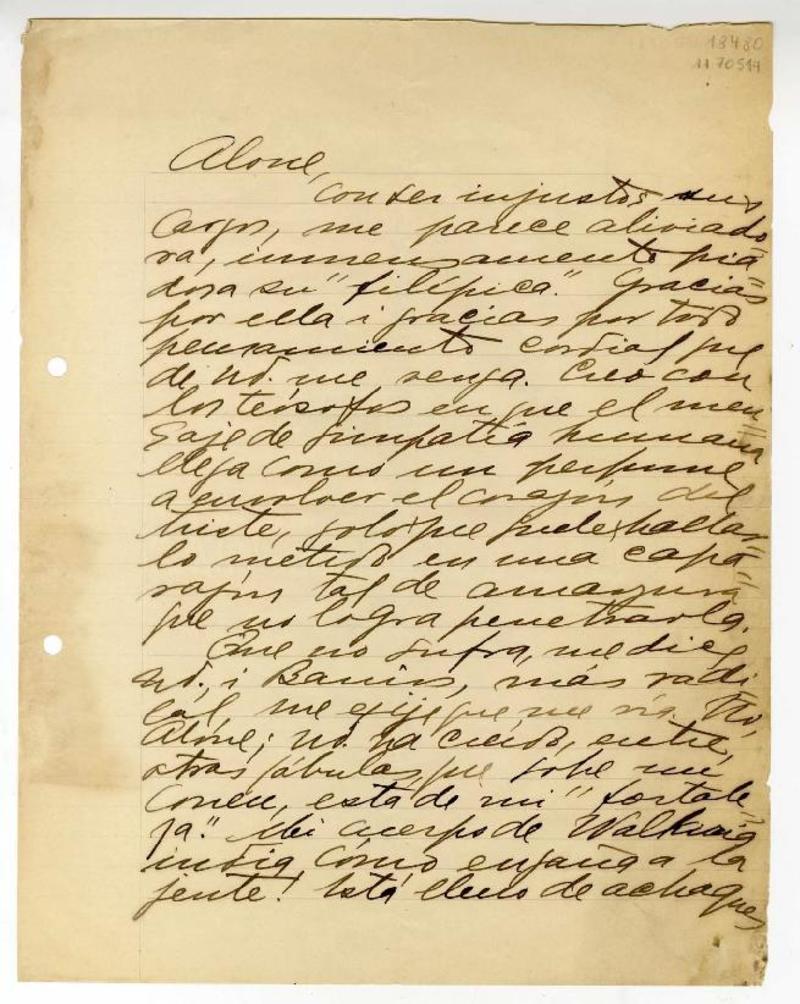 18480
1170514
Alone,
con ser injustos sus
cargos, me parece aliviado-
ra, inmensamente pia-
dosa su "filípica". Gracias
por ella i gracias por todo
pensamiento cordial que
de Ud. me venga. Creo con
los teósofos en que el men-
saje de simpatía humana
llega como un perfume
a envolver el corazón del
triste, solo que suele hallar-
lo metido en una capa-
razón tal de amargura
que no logra penetrarla.
Que no sufra, me dice
Ud., i Barrios, más radi-
cal, me exije que me ría. No,
Alone; Ud. ha creído, entre
otras fábulas que sobre mí
corren, esta de mi "fortale-
za". Mi cuerpo de Walkiria
india cómo engaña a la
jente! Está lleno de achaques